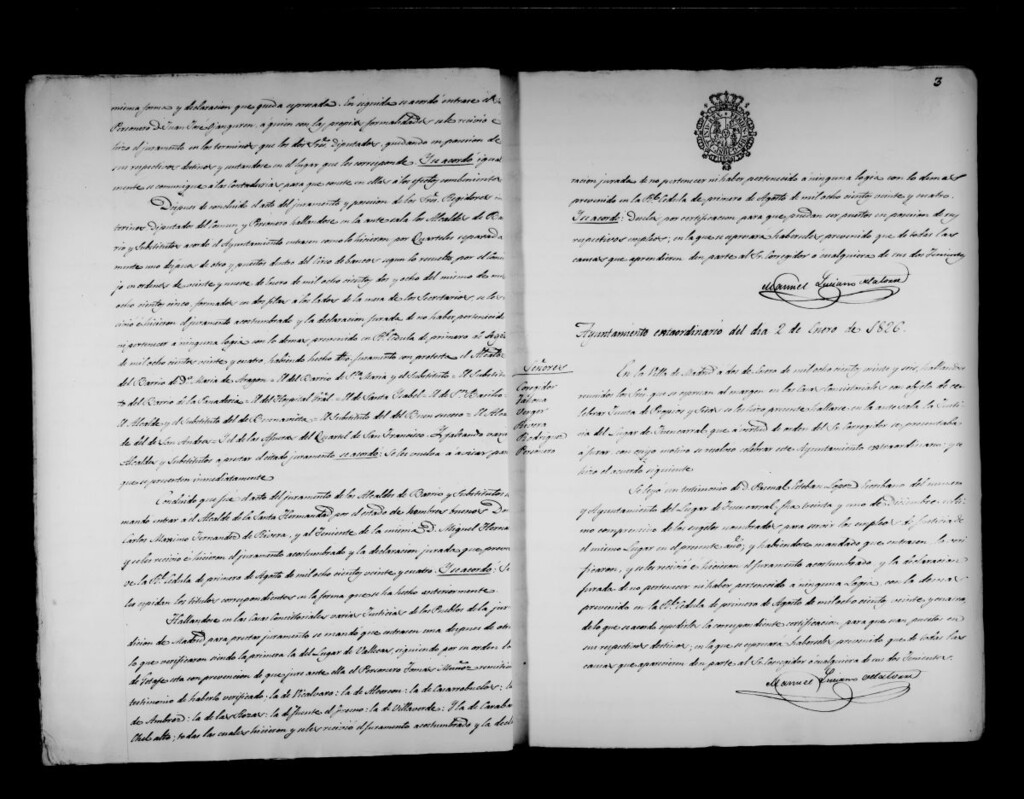 misma forma y declaracion que queda expresada. En seguida se acordó entrase el
Personero D. Juan José Aranguren, a quien con las propias formalidades se le recivió e
hizo el juramento en los terminos que los dos Sres. Diputados, quedando en posesion de
sus respectivos destinos y sentandose en el lugar que les corresponde. Y se acordó igual
mente se comunique a las Contadurias para que conste en ellas a los efectos combenientes
Despues de concluido el acto del juramento y posesion de los Sres. Regidores in
terinos Diputados del Comun y Personero hallandose en la ante sala los Alcaldes de Bar
rio y Substitutos acordó el Ayuntamiento entrasen como lo hicieron por Quarteles separada
mente uno despues de otro y puestos dentro del Circo de bancos segun lo resuelto por el Conse
jo en ordenes de veinte y nueve de Enero de mil ochocientos veinte y dos y ocho del mismo de mil
ochocientos veinte y cinco, formados en dos filas a los lados de la mesa de los Secretarios, se les
recivió e hicieron el juramento acostumbrado y la declaracion jurada de no haber pertenecido
ni pertenecer a ninguna logia con lo demas prevenido en Rl. Cedula de primero de Agosto
de mil ochocientos veinte y cuatro, habiendo hecho dho. juramento con protesta el Alcalde
del Barrio de Dª Maria de Aragon = El del Barrio de Sta. Maria y el Substituto = El Substitu
to del Barrio de la Panaderia = El del Hospital Gral. = El de Santa Isabel = El de Sn. Basilio
El Alcalde y el Substituto del de Bernardas = El Substituto del del Buen suceso = El Alcal
de del de San Andres = Y el de las Afueras del Quartel de San Francisco. Y faltando varios
Alcaldes y Substitutos a prestar el citado juramento se acordó: Se les vuelva a avisar para
que se presenten inmediatamente
Concluido que fue el acto del juramento de los Alcaldes de Barrio y Substitutos se
mandó entrar a el Alcalde de la Santa Hermandad por el estado de hombres buenos Dn.
Carlos Maximo Fernandez de Rivera, y al Teniente de la misma D. Miguel Hernan
y se les recivió e hicieron el juramento acostumbrado y la declaracion jurada que previe
ne la Rl. Cedula de primero de Agosto de mil ochocientos veinte y cuatro. Y se acordó: Se
les expidan los titulos correspondientes en la forma que se ha hecho anteriormente
Hallandose en las Casas Consistoriales varias Justicias de los Pueblos de la juris
dicion de Madrid para prestar juramento se mandó que entrasen una despues de otra
lo que verificaron siendo la primera la del Lugar de Vallecas, siguiendo por su orden la
de Getafe esta con prevencion de que jure ante ella el Personero Tomas Muñoz remitiendo
testimonio de haberlo verificado: la de Vicalvaro: la de Alcorcon: la de Casarrubuelos: la
de Ambroz: la de las Rozas: la de Fuente el fresno: la de Villaverde: Y la de Caraban
chel alto; todas las cuales hicieron y se les recivió el juramento acostumbrado y la decla
3
racion jurada de no pertenecer ni haber pertenecido a ninguna logia con lo demas
prevenido en la Rl. Cedula de primero de Agosto de mil ochocientos veinte y cuatro.
Y se acordó: Darles por certificacion para que puedan ser puestos en posesion de sus
respectivos empleos; en la que se expresará haberseles prevenido que de todas las
causas que aprendieren den parte al Sr. Corregidor o cualquiera de sus dos Tenientes
Manuel Luciano
Ayuntamiento extraordinario del dia 2 de Enero de 1826.
Señores
Corregidor
Personero
En la Villa de Madrid a dos de Enero de mil ochocientos veinte y seis, hallandose
reunidos los Sres. que se expresan al margen en las Casas Consistoriales con objeto de ce
lebrar Junta de Propios y Sisas se les hizo presente hallarse en la ante sala la Justi
cia del Lugar de Fuencarral, que a virtud de orden del Sr. Corregidor se presentaba
a jurar con cuyo motivo se resolvió celebrar este Ayuntamiento extraordinario: y se
hizo el acuerdo siguiente
Se leyó un testimonio de D. Pascual Esteban Lopez Escribano del numero
y Ayuntamiento del Lugar de Fuencarral, fha. treinta y uno de Diciembre ulti
mo comprensivo de los sugetos nombrados para servir los empleos de Justicia de
el mismo Lugar en el presente año; y habiendose mandado que entrasen lo veri
ficaron, y se les recivió e hicieron el juramento acostumbrado y la declaracion
jurada de no pertenecer ni haber pertenecido a ninguna Logia con lo demas
prevenido en la Rl. Cedula de primero de Agosto de mil ochocientos veinte y cuatro,
de lo que se acordó expedirles la correspondiente certificacion, para que sean puestos en
sus respectivos destinos; en la que se expresará haberseles prevenido que de todas las
causas que aparecieren den parte al Sr. Corregidor o cualquiera de sus dos Tenientes.
Manuel Luciano